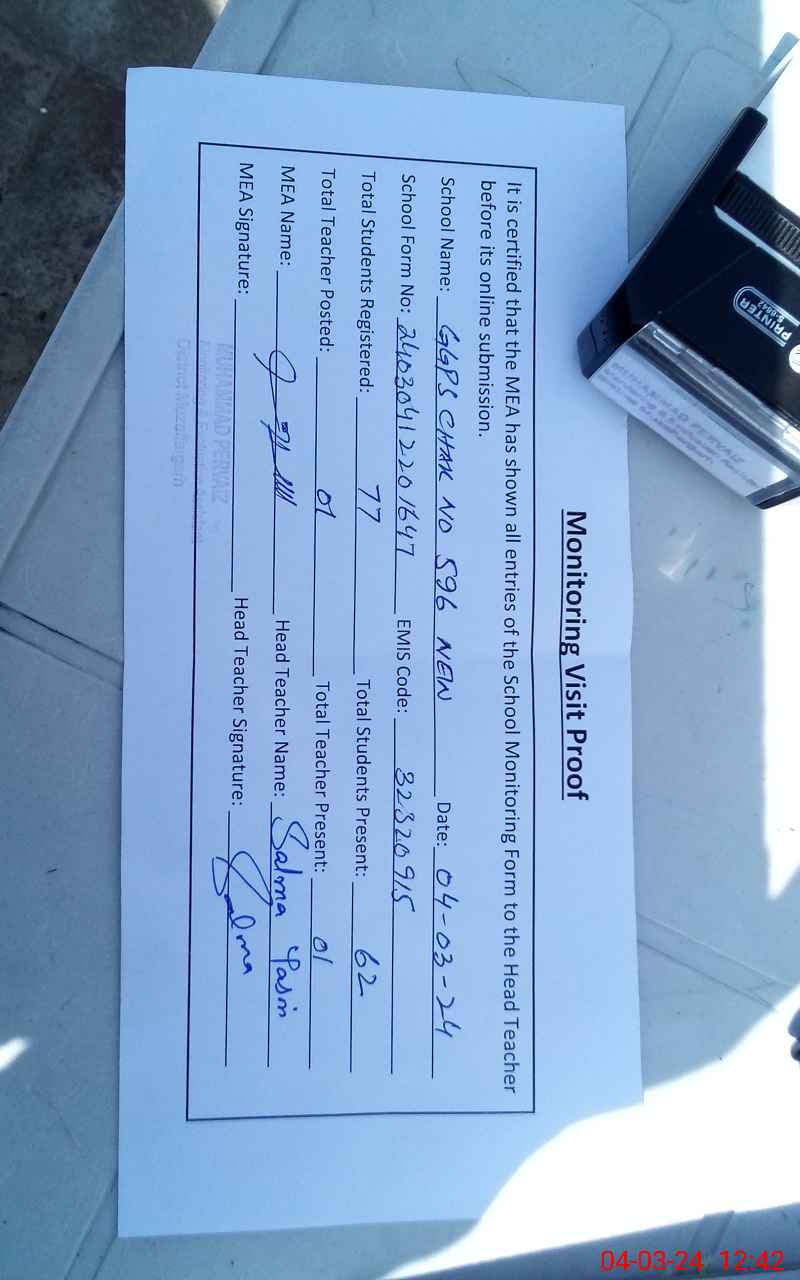 Monitoring Visit Proof
It is certified that the MEA has shown all entries of the School Monitoring Form to the Head Teacher
before its online submission.
School Name: GGPS CHAK NO 596 NEW Date: 04-03-24
School Form No: 24030412201647 EMIS Code: 32320915
Total Students Registered: 77 Total Students Present: 62
Total Teacher Posted: 01 Total Teacher Present: 01
MEA Name: Head Teacher Name: Salma Yasin
MEA Signature: Head Teacher Signature: Salma
MUHAMMAD PERVAIZ
District Muzaffargarh
PRINTER
MUHAMMAD PERVAIZ
04-03-24 12:42